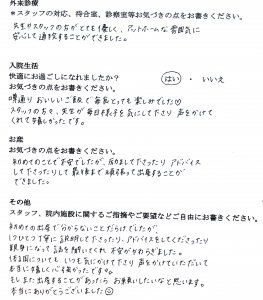 外来診療
*スタッフの対応、待合室、診察室等お気づきの点をお書きください。
先生やスタッフの方がとても優しく、アットホームな雰囲気に
安心して通院することができました。
入院生活
快適にお過ごしになれましたか? はい ・ いいえ
お気づきの点をお書きください。
噂通りおいしいご飯で毎食とっても楽しみでした♡
スタッフの方々、先生が毎日様子を気にして下さり 声をかけて
くれて嬉しかったです。
お産
お気づきの点をお書きください。
初めてのことで不安でしたが、励まして下さったり アドバイス
して下さったりして最後まで頑張って出産することが
できました。
その他
スタッフ、院内施設に関するご指摘やご要望などご自由にお書きください。
初めての出産で分からないことだらけでしたが、
1つひとつ丁寧に説明して下さったり、アドバイスをしてくださったり
親身になって話を聞いてくれ 不安がなくなりました。
いつも気にかけて下さり 声をかけていただいて
本当に嬉しく心強かったです。
もしまた出産することがあったら お願いしたいなと思います。
本当にありがとうございました☺